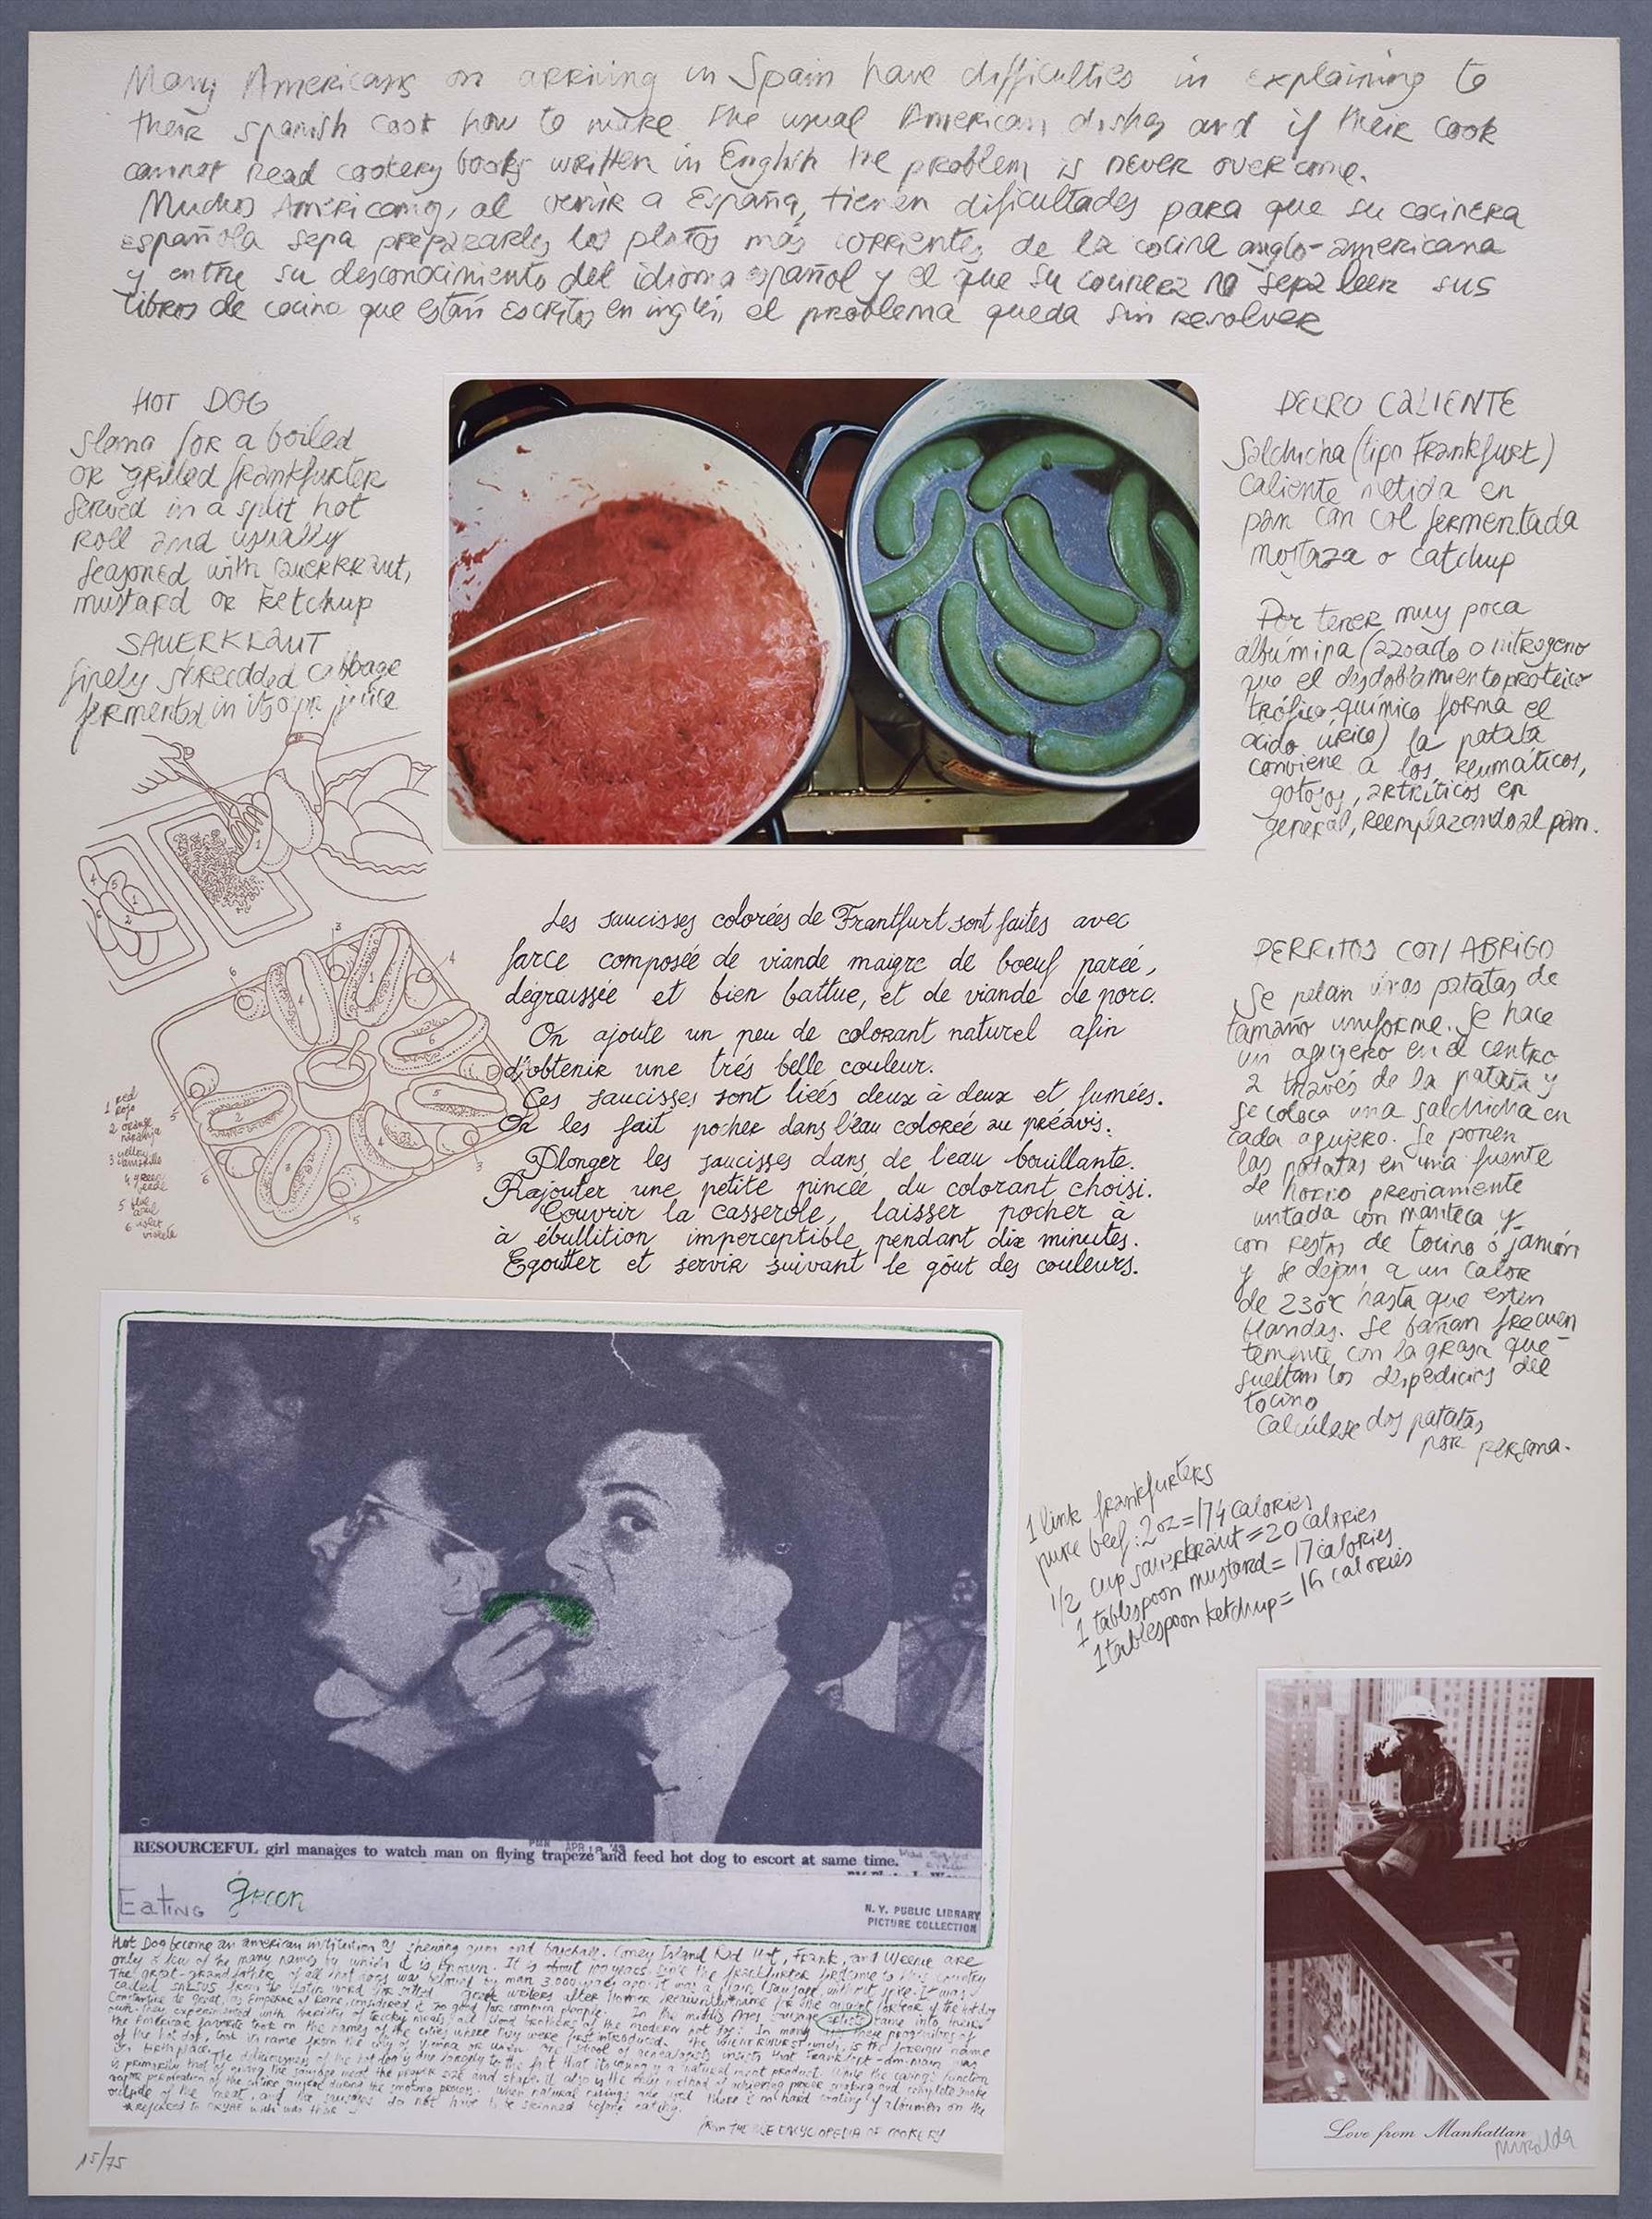 Many Americans on arriving in Spain have difficulties in explaining to
their spanish cook how to make the usual American dishes and if their cook
cannot read cookery books written in English the problem is never over come.
Muchos Américanos, al venir a España, tienen dificultades para que su cocinera
española sepa prepararles los platos más corrientes de la cocina anglo-americana
y entre su desconocimiento del idioma español y el que su cocinera no sepa leer sus
libros de cocina que están escritos en inglés, el problema queda sin resolver
HOT DOG
slang for a boiled
or grilled frankfurter
served in a split hot
roll and usually
seasoned with sauerkraut,
mustard or ketchup
SAUERKRAUT
finely shredded cabbage
fermented in its own juice
1 red
rojo
2 orange
naranja
3 yellow
amarillo
4 green
verde
5 blue
azul
6 violet
violeta
PERRO CALIENTE
Salchicha (tipo Frankfurt)
caliente metida en
pan con col fermentada
mostaza o catchup
Por tener muy poca
albúmina (azoado o nitrogeno
que el desdoblamiento proteico
trófico-químico forma el
acido úrico) la patata
conviene a los reumáticos,
gotosos, artríticos en
general, reemplazando al pan.
Les saucisses colorées de Frantfurt sont faites avec
farce composée de viande maigre de boeuf parée,
dégraissée et bien battue, et de viande de porc.
On ajoute un peu de colorant naturel afin
d'obtenir une trés belle couleur.
Ces saucisses sont liées deux à deux et fumées.
On les fait pocher dans l'eau colorée au préavis.
Plonger les saucisses dans de l'eau bouillante.
Rajouter une petite pincée du colorant choisi.
Couvrir la casserole, laisser pocher à
à ébullition imperceptible pendant dix minutes.
Egoutter et servir suivant le goût des couleurs.
PERRITOS CON ABRIGO
Se pelan unas patatas de
tamaño uniforme. Se hace
un agujero en el centro
a través de la patata y
se coloca una salchicha en
cada agujero. Se ponen
las patatas en una fuente
de horno previamente
untada con manteca y
con restos de tocino ó jamón
y se dejan a un calor
de 230ºC hasta que esten
blandas. Se bañan frecuen
temente con la grasa que
sueltan los despedicios del
tocino
Calculase dos patatas
por persona.
1 link frankfurters
pure beef: 2 oz = 174 calories
1/2 cup sauerkraut = 20 calories
1 tablespoon mustard = 17 calories
1 tablespoon ketchup = 16 calories
RESOURCEFUL girl manages to watch man on flying trapeze and feed hot dog to escort at same time.
APR 18 '43
Eating green
N. Y. PUBLIC LIBRARY
PICTURE COLLECTION
Hot Dog become an american institution as chewing gum and baseball. Coney Island Red Hot, Frank, and Weenie are
only a few of the many names by which it is known. It is about 100 years since the frankfurter became to this country
The great-grandfather of all hot dogs was
from THE ENCYCLOPEDIA OF COOKERY
15/75
Love from Manhattan
Miralda